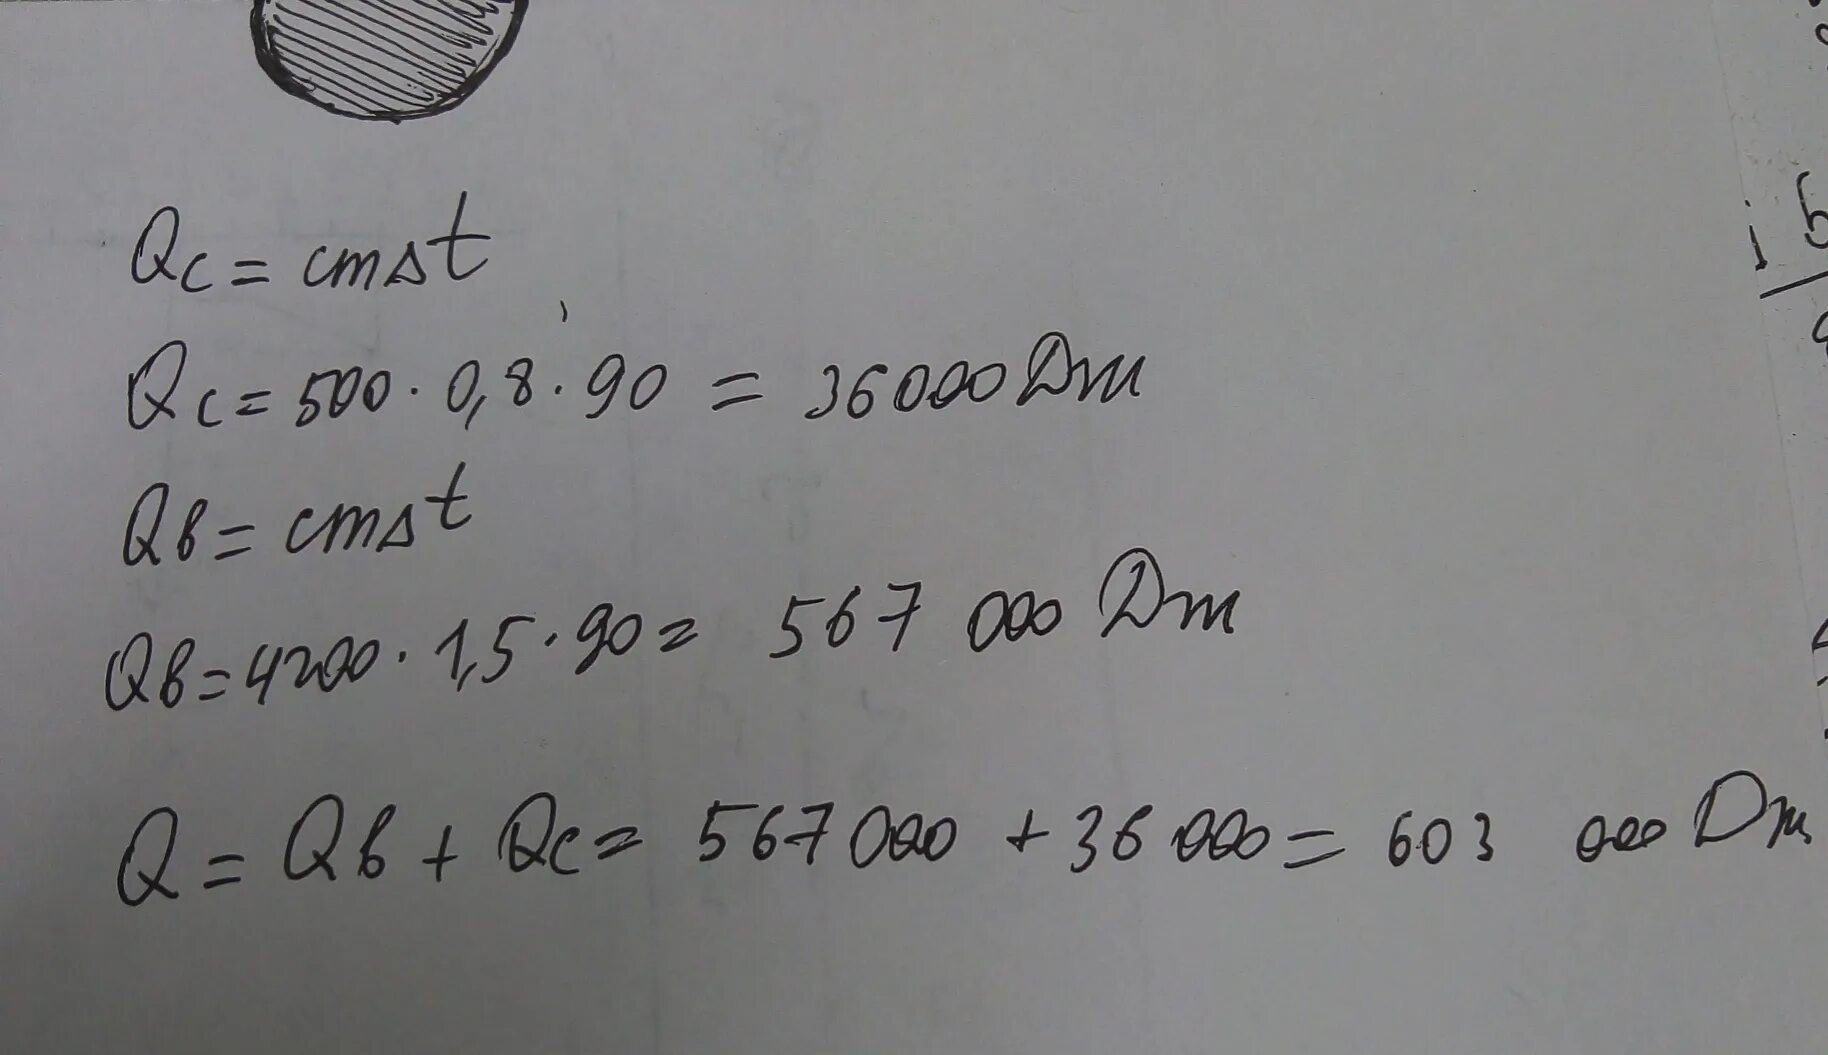 Qc = cmΔt
Qc = 500 · 0,8 · 90 = 36000 Дж
Qв = cmΔt
Qв = 4200 · 1,5 · 90 = 567 000 Дж
Q = Qв + Qc = 567 000 + 36 000 = 603 000 Дж